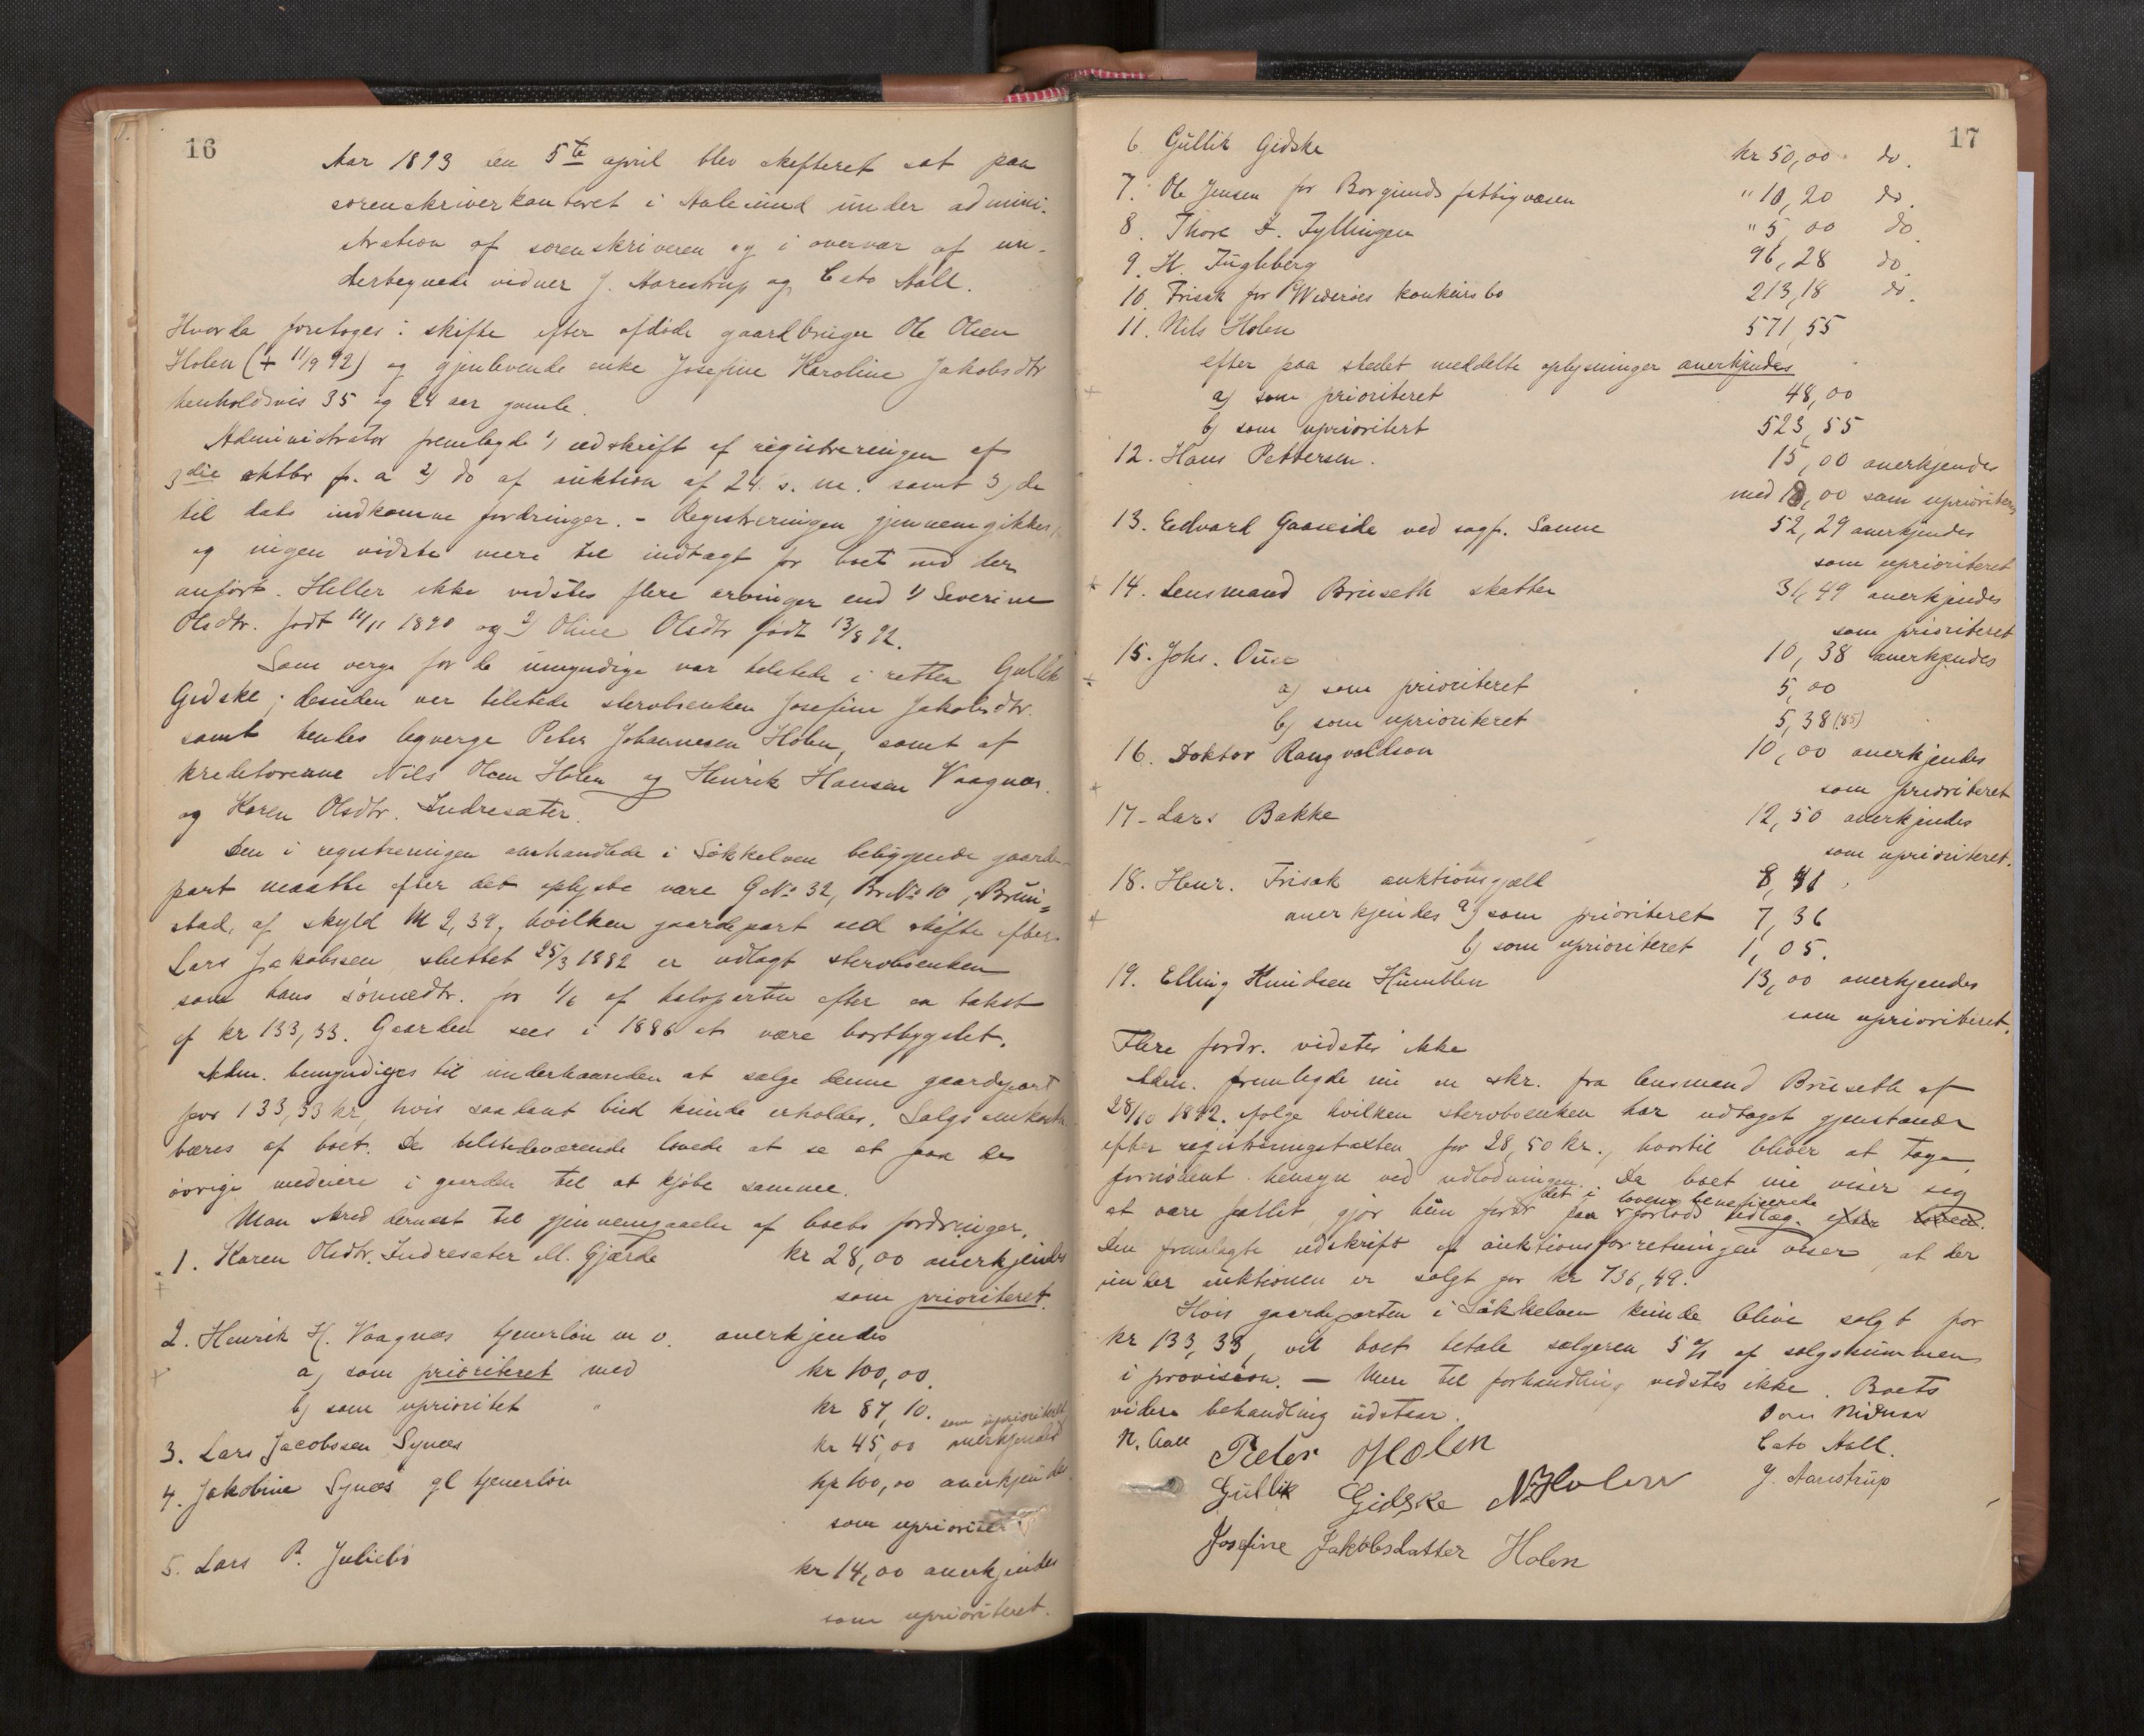 16
Aar 1893 den 5te april blev skifteret sat paa
sorenskriverkontoret i Aalesund under admini-
stration af sorenskriveren og i overvær af un-
dertegnede vidner J. Aarestrup og Cato Aall.
Hvorda foretoges: skifte efter afdøde gaardbruger Ole Olsen
Holen († 11/9 92) og gjenlevende enke Josefine Karoline Jakobsdtr
henholdsvis 35 og 24 aar gamle.
Administrator fremlagde 1) udskrift af registreringen af
3die oktbr f. a 2) do af auktion af 24. s. m. samt 3) de
til dato indkomne fordringer. - Registreringen gjennemgikkes,
og ingen vidste mere til indtægt for boet end der
anført. Heller ikke vidstes flere arvinger end 1) Severine
Olsdtr. født 11/11 1890 og 2) Oline Olsdtr født 13/8 92.
Som verge for de umyndige var tilstede i retten Gullik
Gidske; desuden var tilstede stervboenken Josefine Jakobsdtr.
samt hendes lagverge Peter Johannesen Holen, samt af
kreditorerne Nils Olsen Holen og Henrik Hansen Vaagnæs.
og Karen Olsdtr. Indresæter.
Den i registreringen omhandlede i Søkkelven beliggende gaarde-
part maatte efter det oplyste være G No 32, Br No 10, Bruu-
stad, af skyld M 2,39, hvilken gaardepart ved skifte efter
Lars Jakobssen sluttet 25/3 1882 er udlagt stervboenken
som hans sønnedtr. for 1/6 af halvparten efter en takst
af kr 133,33. Gaarden sees i 1886 at være bortbygslet.
Adm. bemyndiges til underhaanden at sælge denne gaardepart
for 133,33 kr, hvis saadant bud kunde erholdes. Salgsomkostn
bæres af boet. De tilstedeværende lovede at se at faa de
øvrige medeiere i gaarden til at kjøbe samme.
Man skred dernæst til gjennemgaaelse af boets fordringer.
1. Karen Olsdtr. Indresæter ell. Gjærde kr 28,00 anerkjendes
som prioriteret.
2. Henrik H. Vaagnæs tjenerløn m v. anerkjendes
a) som prioriteret med kr 100,00.
b) som uprioritet " kr 87,10.
3. Lars Jacobssen Synæs kr 45,00 anerkjendes som uprioriteret
4. Jakobine Synæs gl tjenerløn kr 100,00 anerkjendes
som uprioriteret
5. Lars P. Juliebø kr 14,00 anerkjendes
som uprioriteret.
17
6 Gullik Gidske kr 50,00 do.
7. Ole Jensen for Borgunds fattigvæsen " 10,20 do.
8. Thore L. Fyllingen " 5,00 do
9. H. Fugleberg 96,28 do.
10. Frisak for Widerøes konkursbo 213,18 do.
11. Nils Holen 571,55
efter paa stedet meddelte oplysninger anerkjendes
a) som prioriteret 48,00
b) som uprioritert 523,55
12. Hans Pettersen. 15,00 anerkjendes
med ,00 som uprioriteret
13. Edvard Gaaseide ved sagf. Sanne 52,29 anerkjendes
som uprioriteret
14. Lensmand Bruseth skatter 31,49 anerkjendes
som prioriteret
15. Johs. Ouse 10,38 anerkjendes
a) som prioriteret 5,00
b) som uprioriteret 5,38 (85)
16. Doktor Rangvaldson 10,00 anerkjendes
som prioriteret
17. Lars Bakke 12,50 anerkjendes
som uprioriteret.
18. Henr. Frisak auktionsgjæld 8,41
anerkjendes a) som prioriteret 7,36
b) som uprioriteret 1,05.
19. Elling Knudsen Humblen 13,00 anerkjendes
som uprioriteret.
Flere fordr. vidstes ikke
Adm. fremlagde nu en skr. fra lensmand Bruseth af
28/10 1892. ifølge hvilken stervboenken har udtaget gjenstande
efter registreringstaxten for 28,50 kr., hvortil bliver at tage
fornødent hensyn ved udlodningen. Da boet nu viser sig
at være fallit, gjør hun fordr paa det i loven beneficerede forlods udlæg. efter loven.
Den fremlagte udskrift af auktionsforretningen viser, at der
under auktionen er solgt for kr 736,49.
Hvis gaardeparten i Søkkelven kunde blive solgt for
kr 133,33, vil boet betale sælgeren 5 % af salgssummen
i provision. - Mere til forhandling vidstes ikke. Boets
videre behandling udstaar.
N. Aall
Som Vidner
Peter Holen
Cato Aall.
Gullik Gidske N Holen
J. Aarestrup
Josefine Jakobsdatter Holen